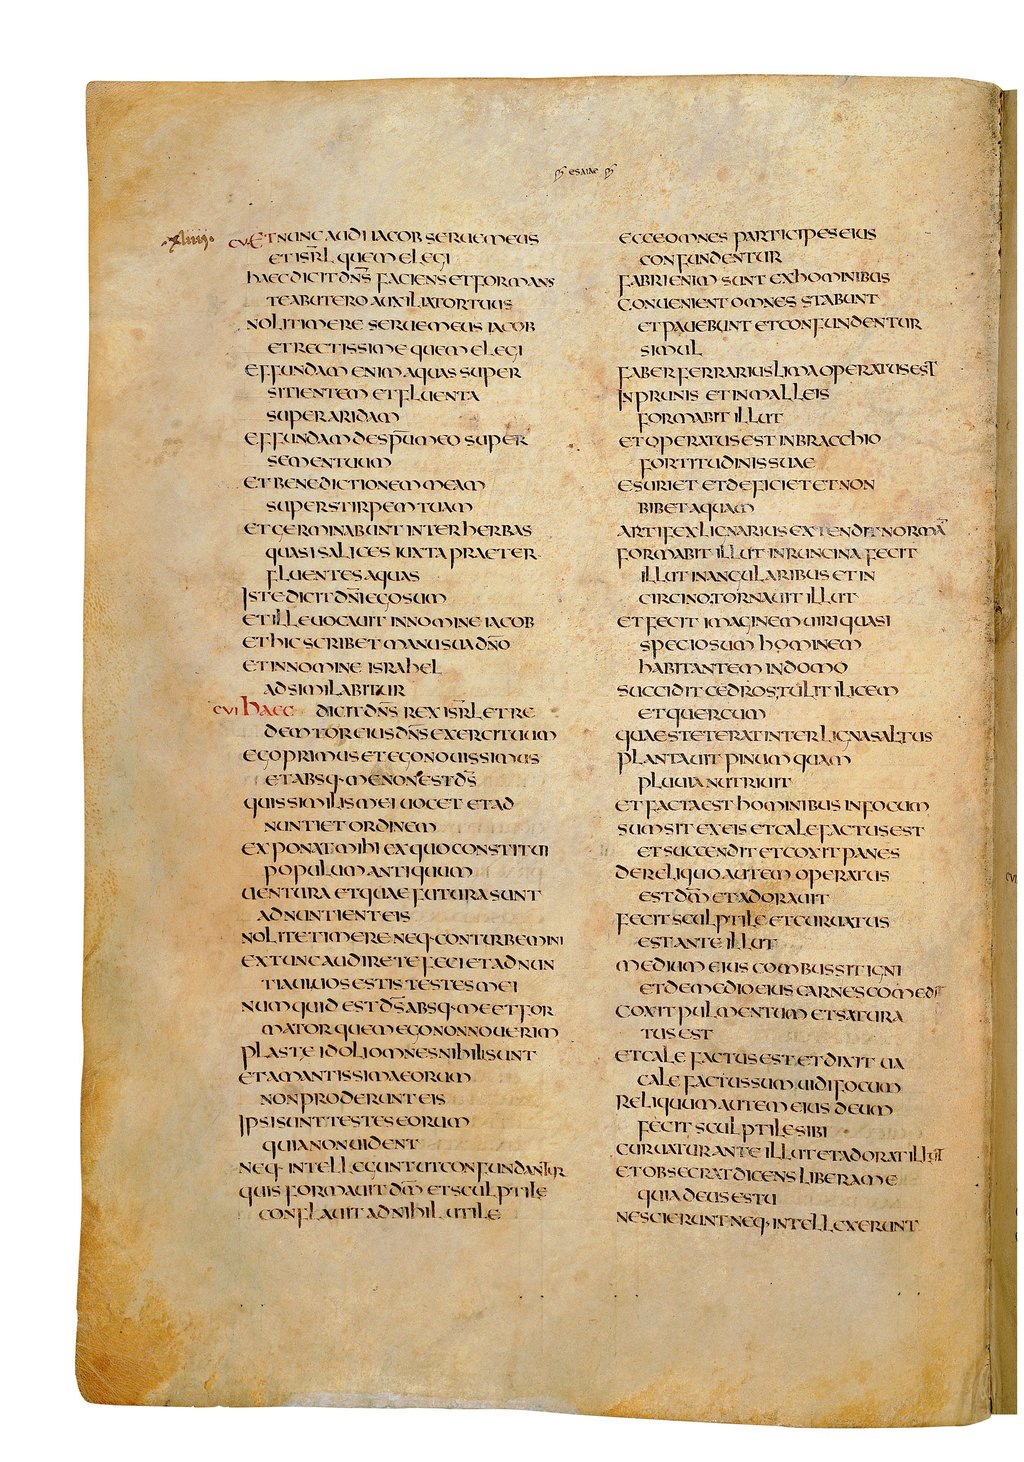 ESAIAE
·XLIIII·
CV ET NUNC AUDI IACOB SERUE MEUS
ET ISRL QUEM ELEGI
HAEC DICIT DNS FACIENS ET FORMANS
TE AB UTERO AUXILIATOR TUUS
NOLI TIMERE SERUE MEUS IACOB
ET RECTISSIME QUEM ELEGI
EFFUNDAM ENIM AQUAS SUPER
SITIENTEM ET FLUENTA
SUPER ARIDAM
EFFUNDAM DE SPUM EO SUPER
SEMEN TUUM
ET BENEDICTIONEM MEAM
SUPER STIRPEM TUAM
ET GERMINABUNT INTER HERBAS
QUASI SALICES IUXTA PRAETER
FLUENTES AQUAS
ISTE DICIT DNI EGO SUM
ET ILLE UOCAUIT IN NOMINE IACOB
ET HIC SCRIBET MANU SUA DNO
ET IN NOMINE ISRAHEL
ADSIMILABITUR
CVI HAEC DICIT DNS REX ISRL ET RE
DEMTOR EIUS DNS EXERCITUUM
EGO PRIMUS ET EGO NOUISSIMUS
ET ABSQ· ME NON EST DS
QUIS SIMILIS MEI UOCET ET AD
NUNTIET ORDINEM
EXPONAT MIHI EX QUO CONSTITUI
POPULUM ANTIQUUM
UENTURA ET QUAE FUTURA SUNT
ADNUNTIENT EIS
NOLITE TIMERE NEQ· CONTURBEMINI
EX TUNC AUDIRE TE FECI ET ADNUN
TIAUI UOS ESTIS TESTES MEI
NUMQUID EST DS ABSQ· ME ET FOR
MATOR QUEM EGO NON NOUERIM
PLASTE IDOLI OMNES NIHILI SUNT
ET AMANTISSIMA EORUM
NON PRODERUNT EIS
IPSI SUNT TESTES EORUM
QUIA NON UIDENT
NEQ· INTELLEGUNT UT CONFUNDANTUR
QUIS FORMAUIT DM ET SCULPTILE
CONFLAUIT AD NIHIL UTILE
ECCE OMNES PARTICIPES EIUS
CONFUNDENTUR
FABRI ENIM SUNT EX HOMINIBUS
CONUENIENT OMNES STABUNT
ET PAUEBUNT ET CONFUNDENTUR
SIMUL
FABER FERRARIUS LIMA OPERATUS EST
IN PRUNIS ET IN MALLEIS
FORMABIT ILLUT
ET OPERATUS EST IN BRACCHIO
FORTITUDINIS SUAE
ESURIET ET DEFICIET ET NON
BIBET AQUAM
ARTIFEX LIGNARIUS EXTENDIT NORMA
FORMABIT ILLUT IN RUNCINA FECIT
ILLUT IN ANGULARIBUS ET IN
CIRCINO TORNAUIT ILLUT
ET FECIT IMAGINEM UIRI QUASI
SPECIOSUM HOMINEM
HABITANTEM IN DOMO
SUCCIDIT CEDROS TULIT ILICEM
ET QUERCUM
QUAE STETERAT INTER LIGNA SALTUS
PLANTAUIT PINUM QUAM
PLUUIA NUTRIUIT
ET FACTA EST HOMINIBUS IN FOCUM
SUMSIT EX EIS ET CALEFACTUS EST
ET SUCCENDIT ET COXIT PANES
DE RELIQUO AUTEM OPERATUS
EST DM ET ADORAUIT
FECIT SCULPTILE ET CURUATUS
EST ANTE ILLUT
MEDIUM EIUS COMBUSSIT IGNI
ET DE MEDIO EIUS CARNES COMEDIT
COXIT PULMENTUM ET SATURA
TUS EST
ET CALEFACTUS EST ET DIXIT UA
CALEFACTUS SUM UIDI FOCUM
RELIQUUM AUTEM EIUS DEUM
FECIT SCULPTILE SIBI
CURUATUR ANTE ILLUT ET ADORAT ILLUT
ET OBSECRAT DICENS LIBERA ME
QUIA DEUS ES TU
NESCIERUNT NEQ· INTELLEXERUNT